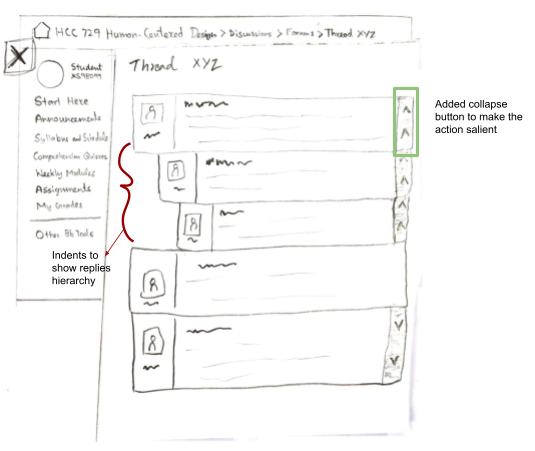 HCC 729 Human-Centered Design > Discussions > Forums > Thread XYZ
X
Student
Thread XYZ
Start Here
Announcements
Syllabus and Schedule
Comprehension Quizzes
Weekly Modules
Assignments
My Grades
Other Bb Tools
Added collapse
button to make the
action salient
Indents to
show replies
hierarchy